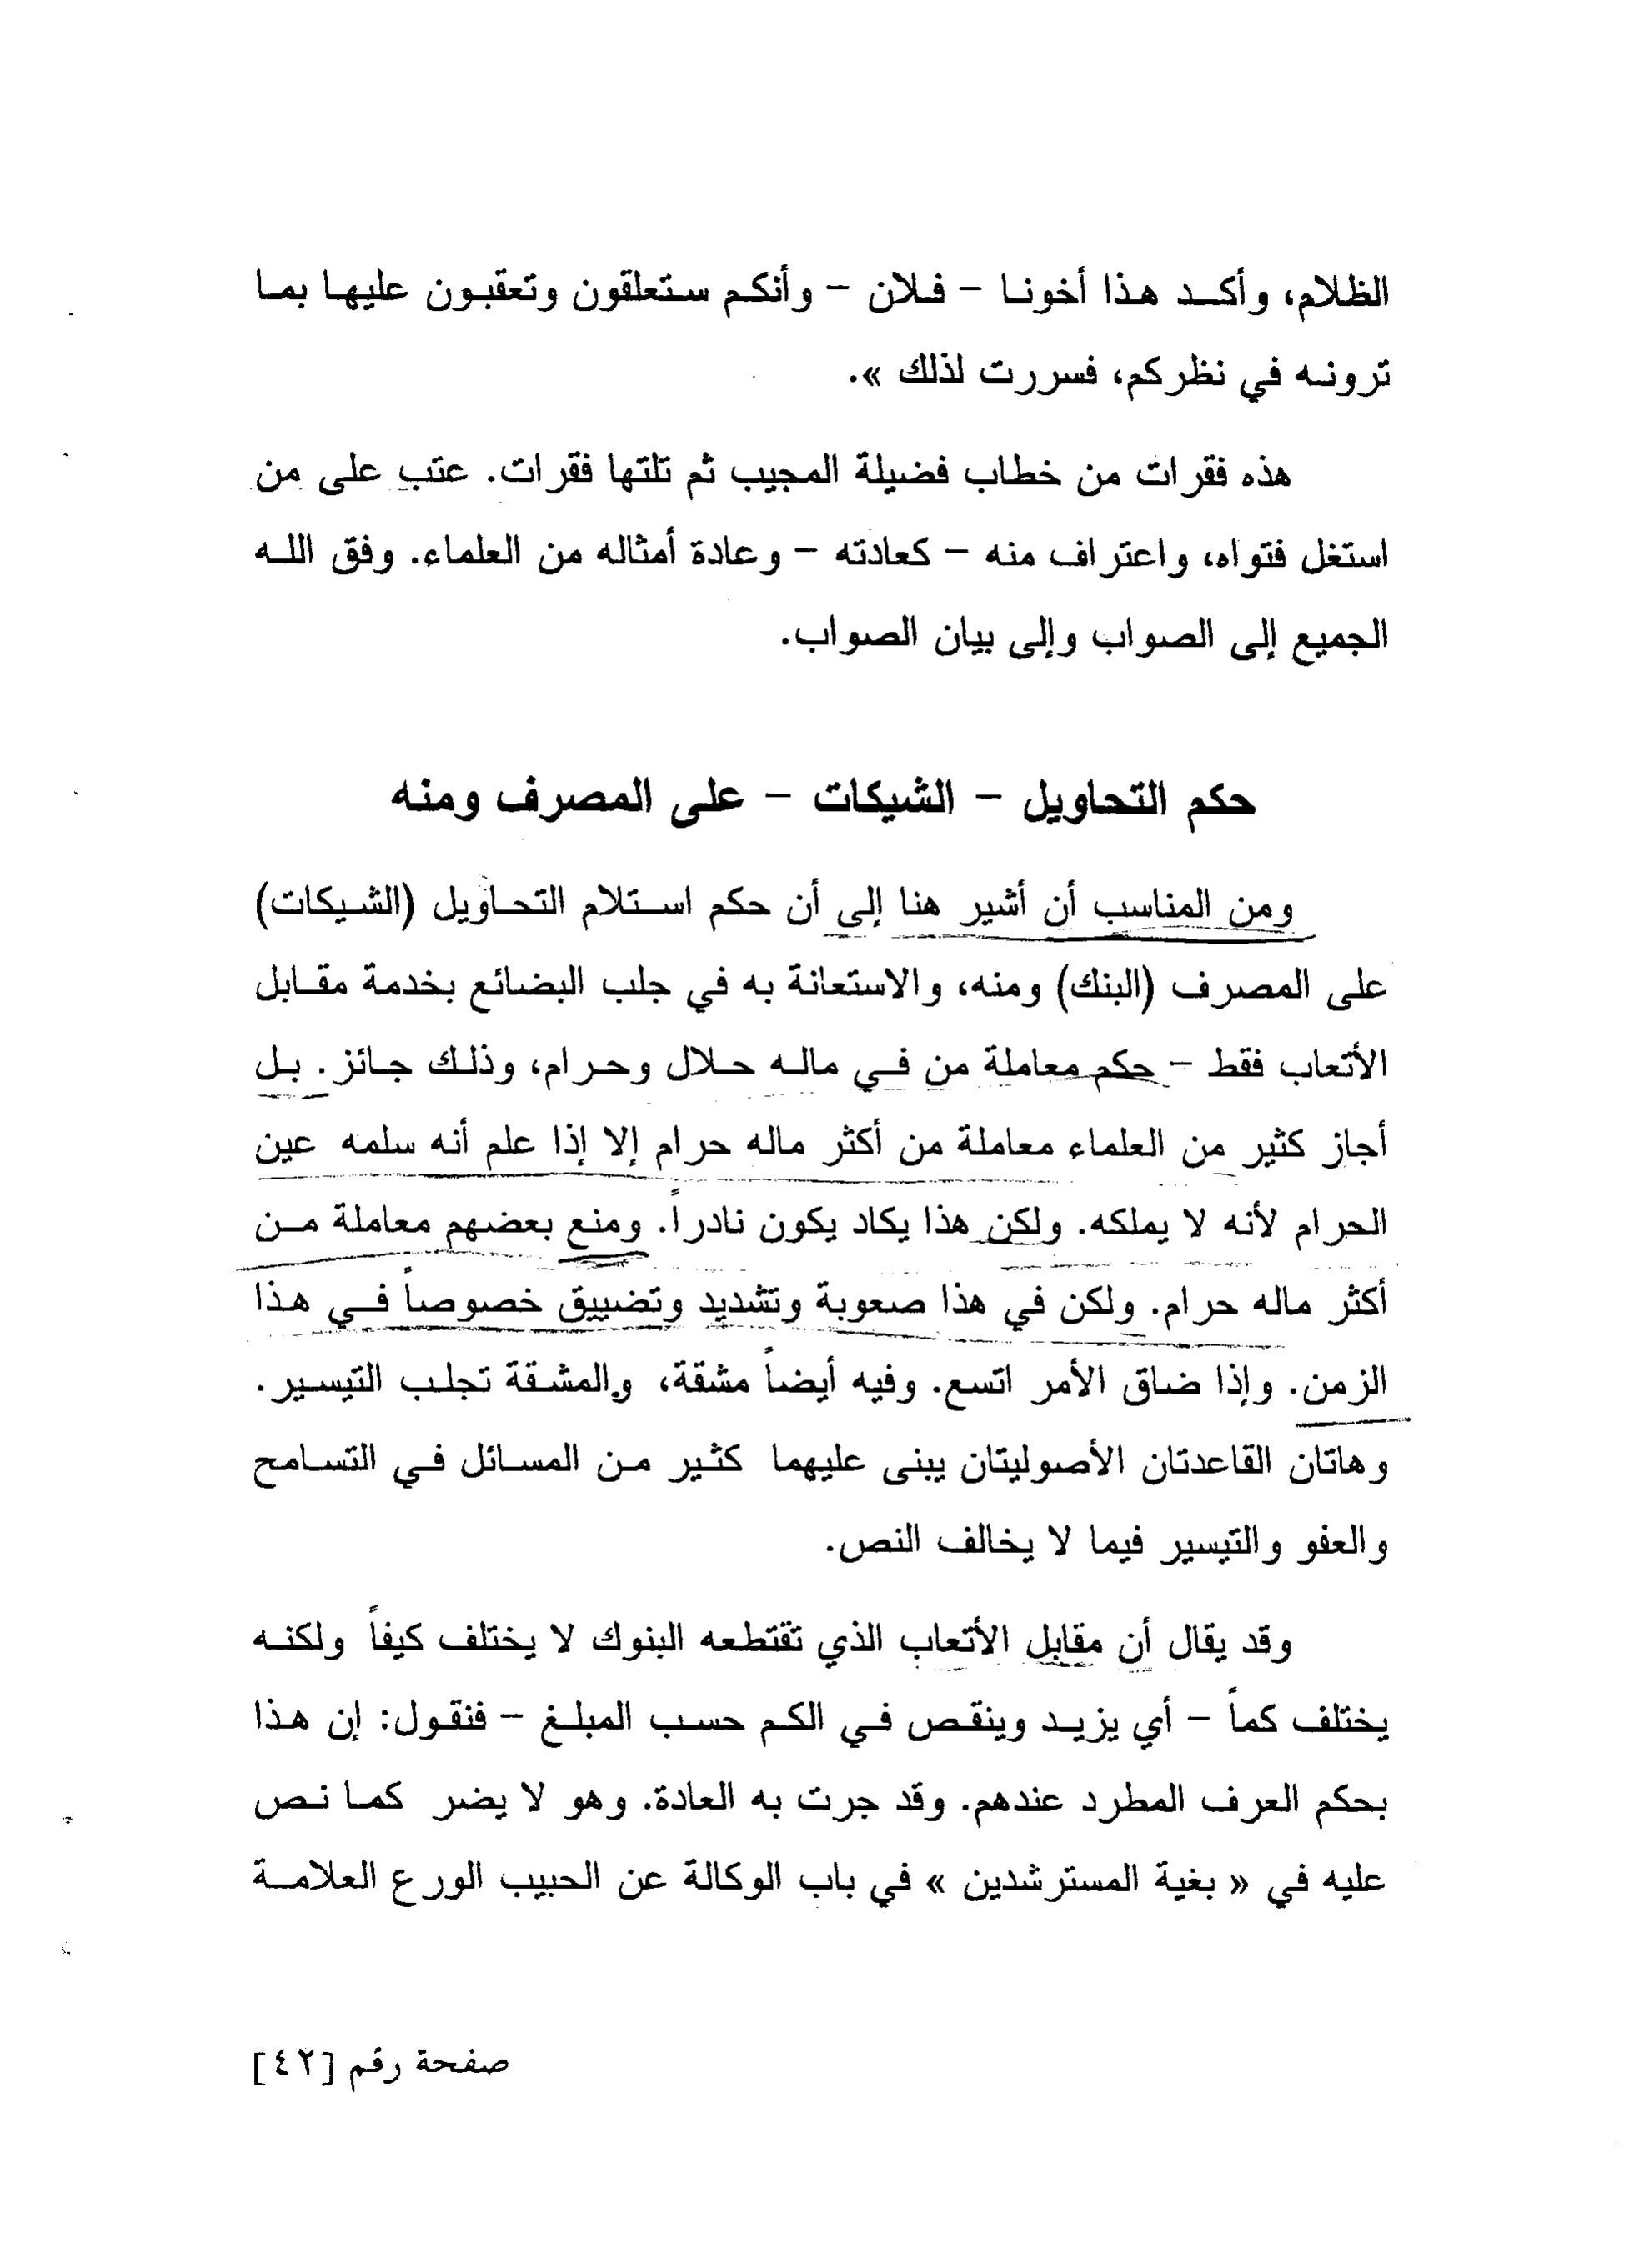 الظلام، وأكد هذا أخونا – فلان – وأنكم ستعلقون وتعقبون عليها بما
ترونه في نظركم، فسررت لذلك ».
هذه فقرات من خطاب فضيلة المجيب ثم تلتها فقرات. عتب على من
استغل فتواه، واعتراف منه – كعادته – وعادة أمثاله من العلماء. وفق الله
الجميع إلى الصواب وإلى بيان الصواب.
حكم التحاويل – الشيكات – على المصرف ومنه
ومن المناسب أن أشير هنا إلى أن حكم استلام التحاويل (الشيكات)
على المصرف (البنك) ومنه، والاستعانة به في جلب البضائع بخدمة مقابل
الأتعاب فقط – حكم معاملة من في ماله حلال وحرام، وذلك جائز. بل
أجاز كثير من العلماء معاملة من أكثر ماله حرام إلا إذا علم أنه سلمه عين
الحرام لأنه لا يملكه. ولكن هذا يكاد يكون نادراً. ومنع بعضهم معاملة من
أكثر ماله حرام. ولكن في هذا صعوبة وتشديد وتضييق خصوصاً في هذا
الزمن. وإذا ضاق الأمر اتسع. وفيه أيضاً مشقة، والمشقة تجلب التيسير.
وهاتان القاعدتان الأصوليتان يبنى عليهما كثير من المسائل في التسامح
والعفو والتيسير فيما لا يخالف النص.
وقد يقال أن مقابل الأتعاب الذي تقتطعه البنوك لا يختلف كيفاً ولكنه
يختلف كماً – أي يزيد وينقص في الكم حسب المبلغ – فنقول: إن هذا
بحكم العرف المطرد عندهم. وقد جرت به العادة. وهو لا يضر كما نص
عليه في « بغية المسترشدين » في باب الوكالة عن الحبيب الورع العلامة
صفحة رقم [٤٢]